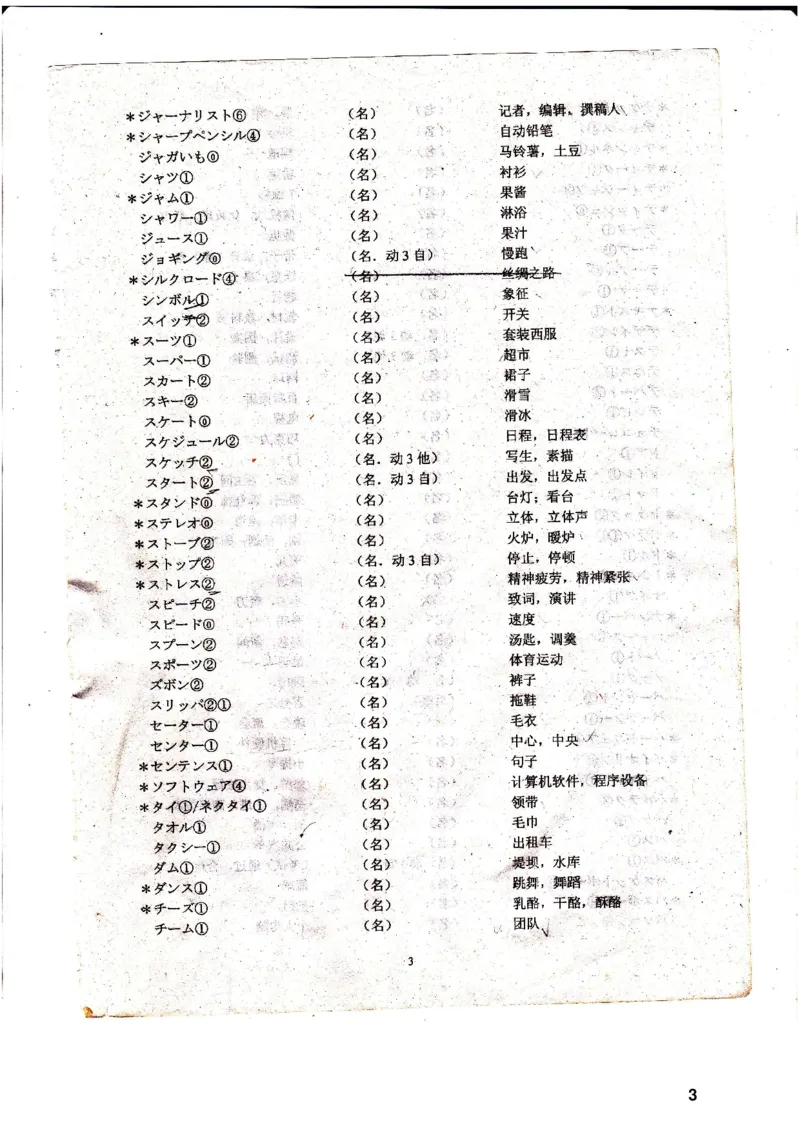 *ジャーナリスト⑥ （名） 记者，编辑、撰稿人
*シャープペンシル④ （名） 自动铅笔
ジャガいも⓪ （名） 马铃薯，土豆
シャツ① （名） 衬衫
*ジャム① （名） 果酱
シャワー① （名） 淋浴
ジュース① （名） 果汁
ジョギング⓪ （名．动3自） 慢跑
*シルクロード④ （名） 丝绸之路
シンボル① （名） 象征
スイッチ② （名） 开关
*スーツ① （名） 套装西服
スーパー① （名） 超市
スカート② （名） 裙子
スキー② （名） 滑雪
スケート⓪ （名） 滑冰
スケジュール② （名） 日程，日程表
スケッチ② （名．动3他） 写生，素描
スタート② （名．动3自） 出发，出发点
*スタンド⓪ （名） 台灯；看台
*ステレオ⓪ （名） 立体，立体声
*ストーブ② （名） 火炉，暖炉
*ストップ② （名．动3自） 停止，停顿
*ストレス② （名） 精神疲劳，精神紧张
スピーチ② （名） 致词，演讲
スピード⓪ （名） 速度
スプーン② （名） 汤匙，调羹
スポーツ② （名） 体育运动
ズボン② （名） 裤子
スリッパ②① （名） 拖鞋
セーター① （名） 毛衣
センター① （名） 中心，中央
*センテンス① （名） 句子
*ソフトウェア④ （名） 计算机软件，程序设备
*タイ①/ネクタイ① （名） 领带
タオル① （名） 毛巾
タクシー① （名） 出租车
ダム① （名） 堤坝，水库
*ダンス① （名） 跳舞，舞蹈
*チーズ① （名） 乳酪，干酪，酥酪
チーム① （名） 团队
3
3